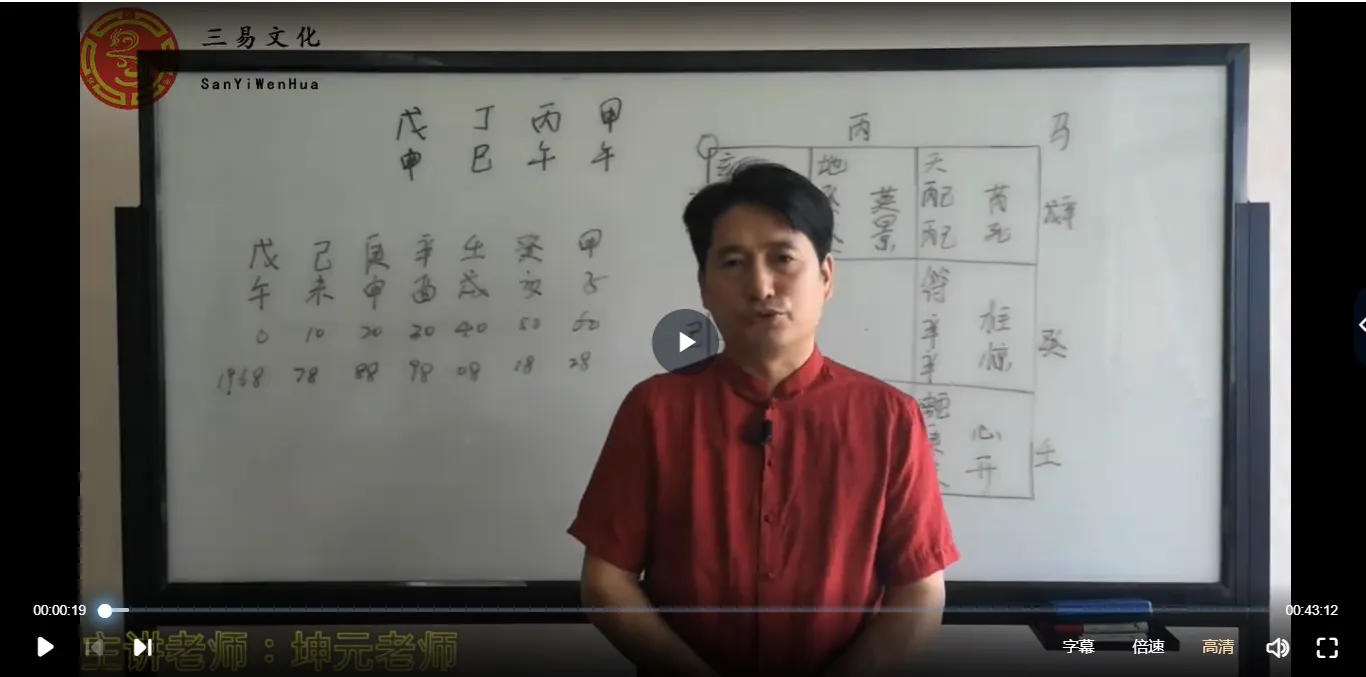 三易文化
SanYiWenHua
戊 丁 丙 甲
申 巳 午 午
丙 马
地 天
英 芮
景 死
戊 己 庚 辛 壬 癸 甲
午 未 申 酉 戌 亥 子
0 10 20 30 40 50 60
1968 78 88 98 08 18 28
符
辛 柱 癸
辛 惊
心 壬
开
00:00:19
00:43:12
主讲老师：坤元老师
字幕 倍速 高清